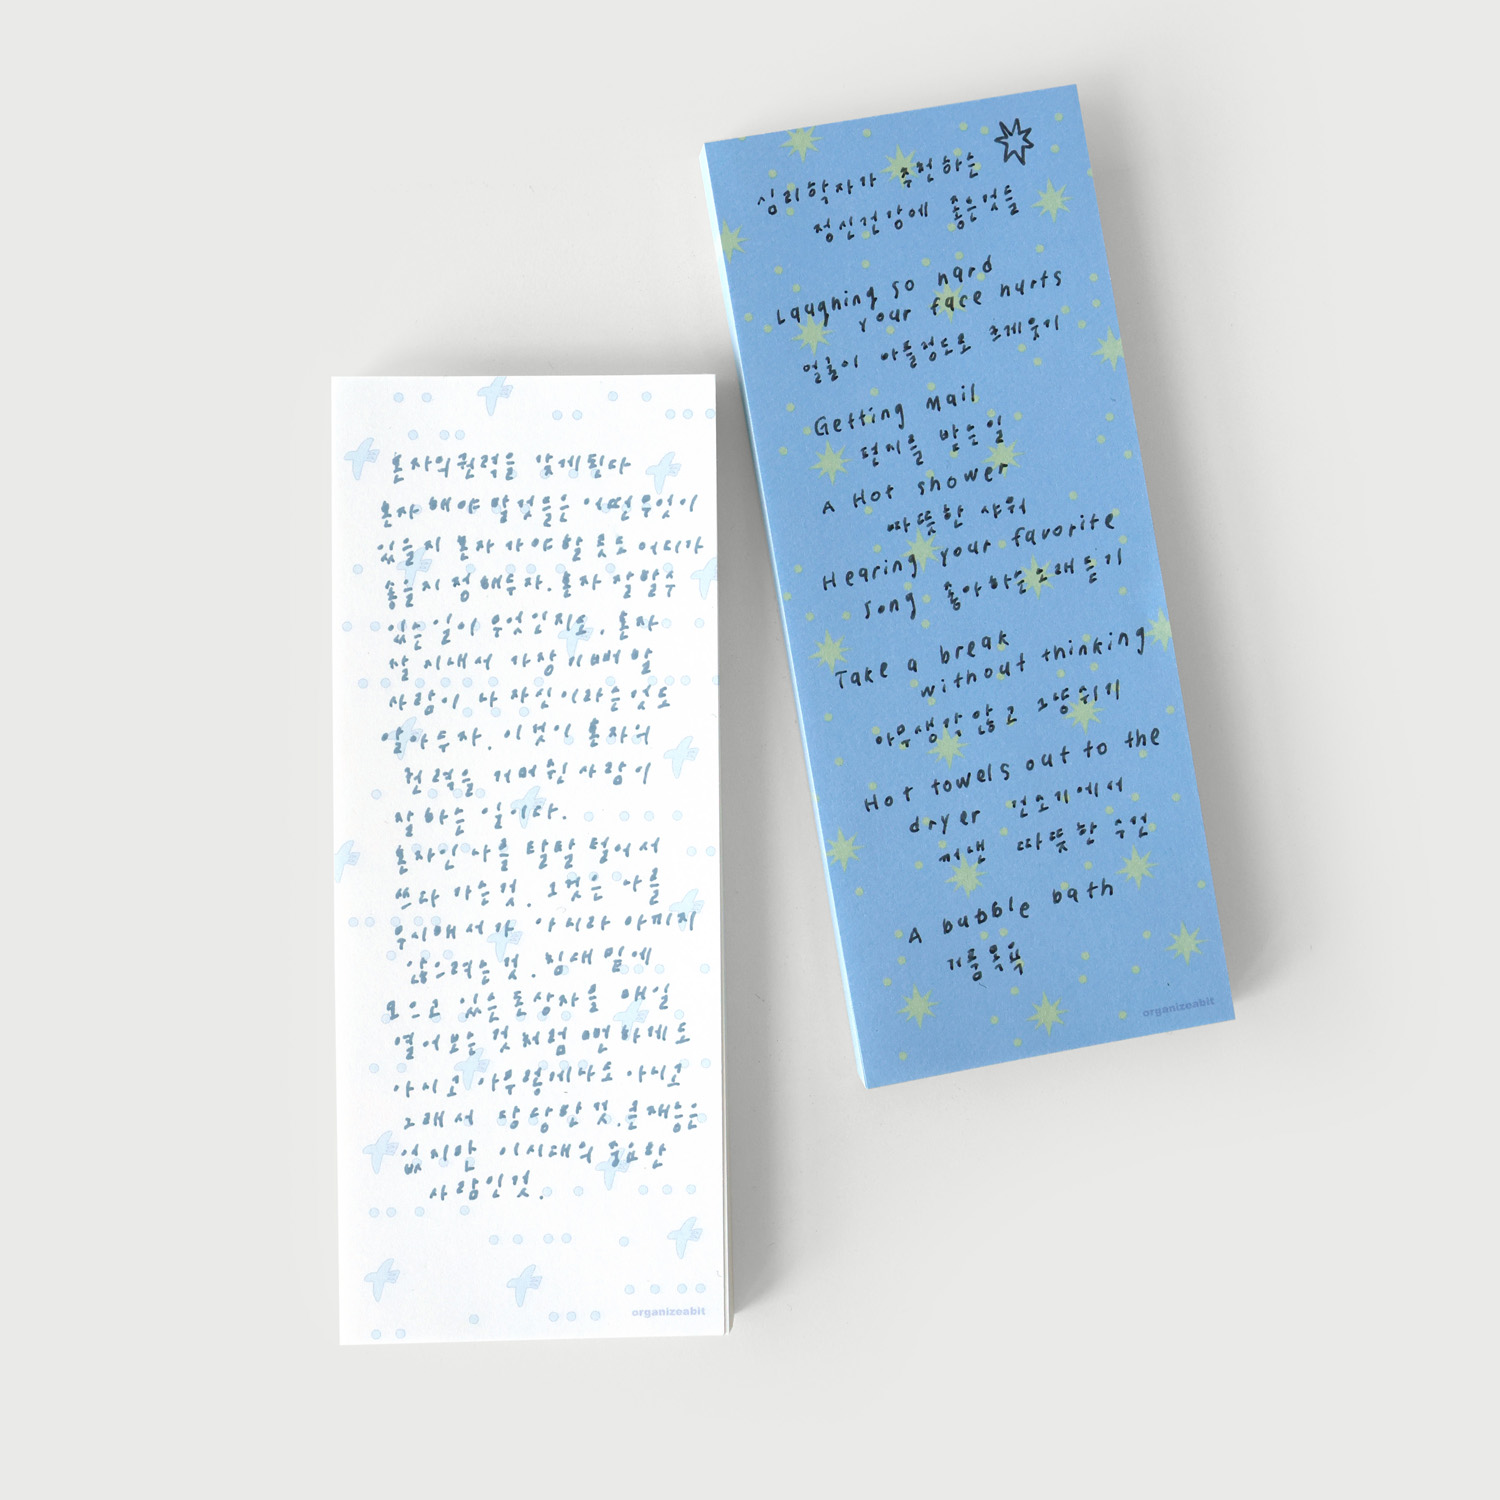 혼자의 권력을 갖게된다
혼자 해야 할것들은 어떤무엇이
있을지 혼자 가야할 곳도 어디가
좋을지 정해두자. 혼자 잘할수
있는 일이 무엇인지도. 혼자
잘 지내서 가장 기뻐 할
사람이 나 자신이라는 것도
알아두자. 이것이 혼자의
권력을 거머쥔 사람이
잘 하는 일이다.
혼자인 나를 탈탈 털어서
쓰다 가는것. 그것은 나를
무시해서가 아니라 아끼지
않으려는 것. 침대 밑에
모으고 있는 돈상자를 매일
열어보는 것처럼 뻔하게도
아니고 아무렇에나도 아니고
그래서 당당한 것. 존재능은
없지만 이시대의 중요한
사람인것.
organizeabit
심리학자가 추천하는
정신건강에 좋은것들
Laughing so hard
your face hurts
얼굴이 아플정도로 크게웃기
Getting Mail
편지를 받는일
A Hot shower
따뜻한 샤워
Hearing your favorite
song 좋아하는노래 듣기
Take a break
without thinking
아무생각 않고 그냥쉬기
Hot towels out to the
dryer 건조기에서
꺼낸 따뜻한 수건
A bubble bath
거품목욕
organizeabit